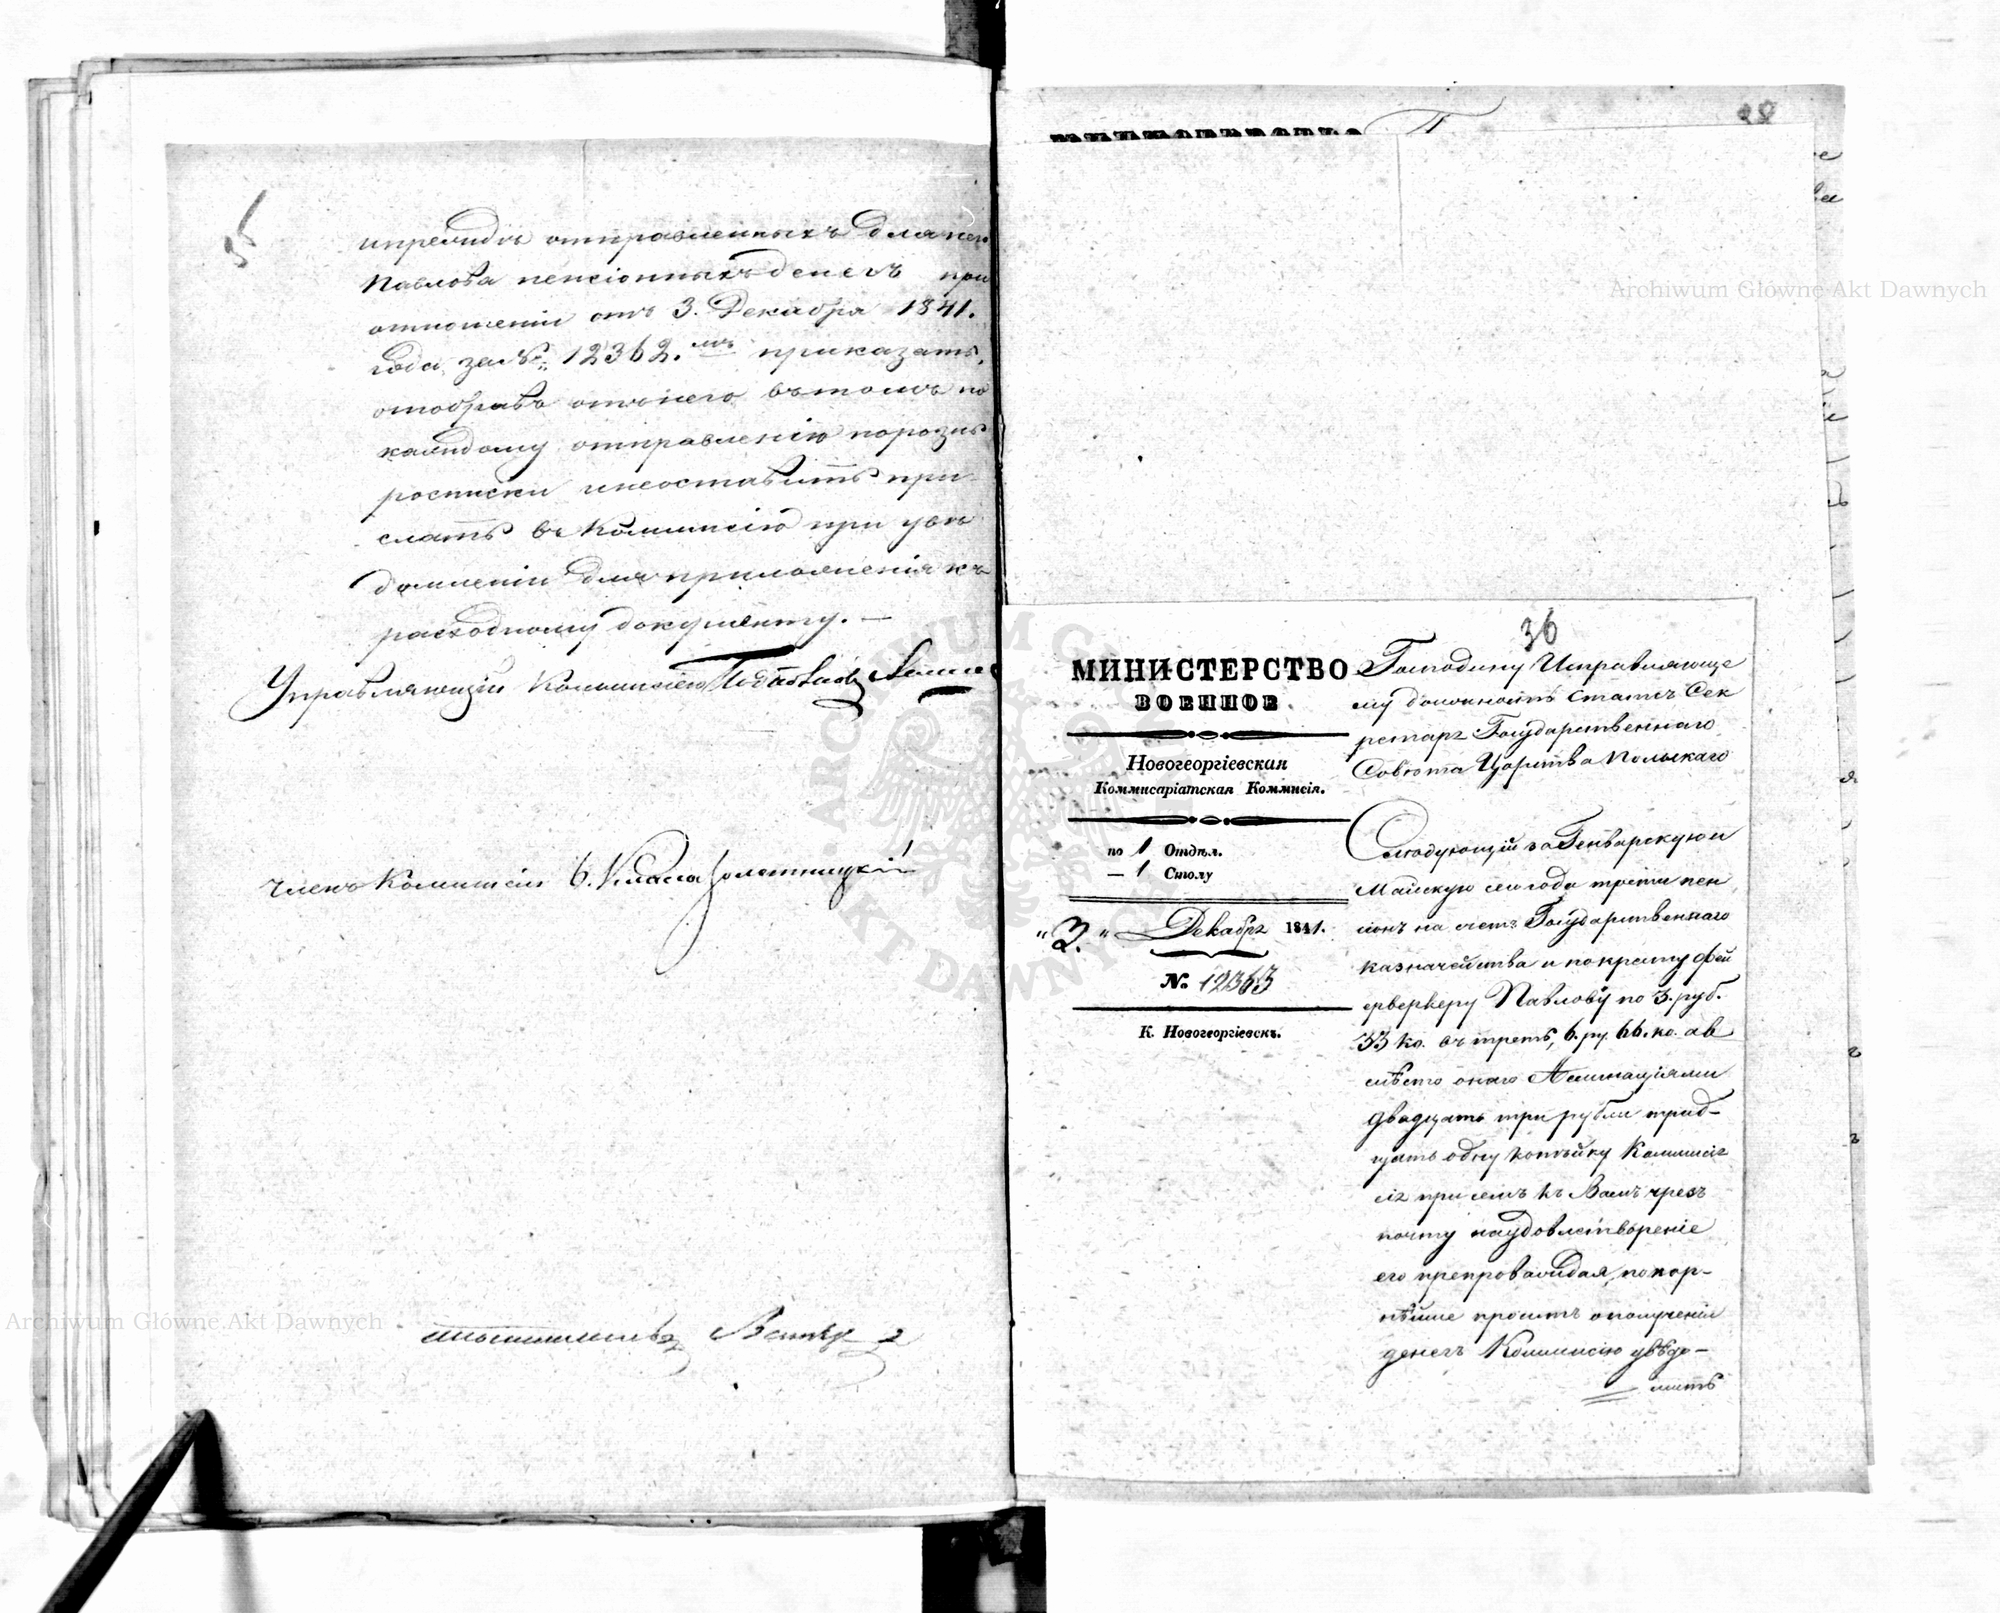 и прежде отправленныхъ для него
Павлова пенсіонныхъ денегъ при
отношеніи отъ 3. Декабря 1841.
года за № 12362.мъ приказать,
отобравъ отъ него въ томъ по
каждому отправленію порознь
росписки неоставить при-
слать въ Коммисію при увѣ
домленіи для приложенія къ
расходному документу. —
Управляющій Коммисіею
Членъ Коммисіи 6. Класса Золотницкій
36
МИНИСТЕРСТВО
ВОЕННОЕ
Новогеоргіевская
Коммисаріатская Коммисія.
по 1 Отдѣл.
— 1 Столу
"3." Декабря 1841.
№ 12363
К. Новогеоргіевскъ.
Господину Исправляюще
му должность Статсъ Сек
ретаря Государственнаго
Совѣта Царства Польскаго
Слѣдующій за Генварскую и
Майскую сего года трети пен
сіонъ на счетъ Государственнаго
казначейства и по кресту Фей
ерверкеру Павлову по 3. руб.
33 ко. въ треть, 6. ру. 66. ко. а в
мѣсто онаго Ассигнаціями
двадцать три рубли трид-
цать одну копѣйку Коммисія
при семъ къ Вамъ чрезъ
почту на удовлетвореніе
его препровождая, покор-
нѣйше проситъ о полученіи
денегъ Коммисію увѣдо-
мить
Archiwum Główne Akt Dawnych
Archiwum Główne Akt Dawnych
ARCHIWUM GŁÓWNE AKT DAWNYCH